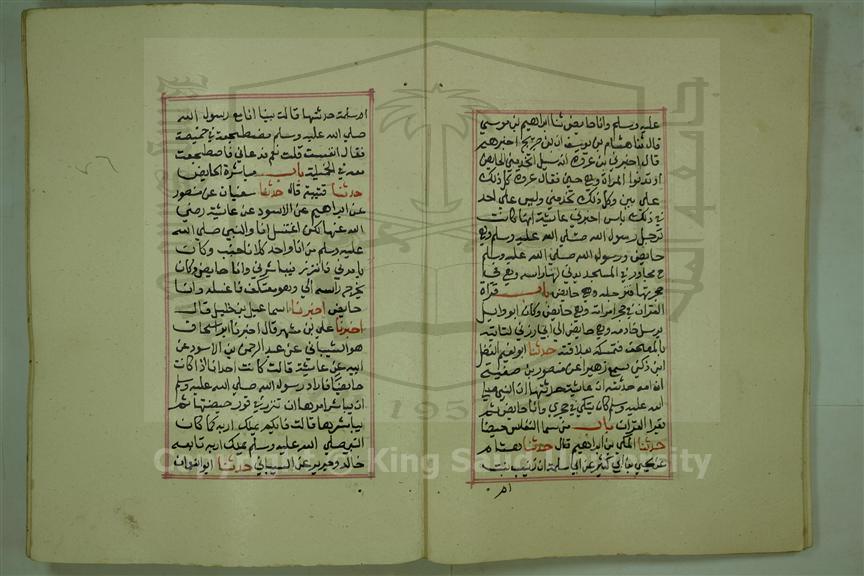 عليه وسلم وانا حايض ثنا ابراهيم بن موسى
قال ثنا هشام بن يوسف ان بن جريج اخبرهم
قال اخبرني بن عروة انه سيل اتخدمني الحايض
او تدنوا المراة وهي جنب فقال عروة كل ذلك
علي هين وكل ذلك تخدمني وليس على احد
في ذلك باس اخبرتني عايشة انها كانت
ترجل رسول الله صلى الله عليه وسلم وهي
حايض ورسول الله صلى الله عليه وسلم
ح مجاور في المسجد يدني لها راسه وهي في
حجرتها فترجله وهي حايض باب قراة
القران في حجر امراته وهي حايض وكان ابو وايل
يرسل خادمه وهي حايض الى ابي رزين لتاتيه
بالمصحف فتمسكه بعلاقته حدثنا ابو نعيم الفضل
ابن دكين سمع زهيرا عن منصور بن صفية
ان امه حدثته ان عايشة حدثتها ان النبي صلى
الله عليه وسلم كان يتكي في حجري وانا حايض ثم
يقرا القران باب من سما النفاس حيضا
حدثنا المكي بن ابراهيم قال حدثنا هشام
عن يحيى بن ابي كثير عن ابي سلمة ان زينب بنت
ام
ام سلمة حدثتها قالت بينا انا مع رسول الله
صلى الله عليه وسلم مضطجعة في خميصة
فقال انفست قلت نعم فدعاني فاضطجعت
معه في الخميلة باب مباشرة الحايض
حدثنا قتيبة قال حدثنا سفيان عن منصور
عن ابراهيم عن الاسود عن عايشة رضي
الله عنها كنت اغتسل انا والنبي صلى الله
عليه وسلم من انا واحد كلانا جنب وكان
يامرني فاتزر فيباشرني وانا حايض وكان
يخرج راسه الي وهو معتكف فاغسله وانا
حايض اخبرنا اسماعيل بن خليل قال
اخبرنا علي بن مسهر قال اخبرنا ابو اسحاق
هو الشيباني عن عبد الرحمن بن الاسود عن
ابيه عن عايشة قالت كانت احدانا اذا كانت
حايضا فاراد رسول الله صلى الله عليه وسلم
ان يباشرها امرها ان تتزر في فور حيضتها ثم
يباشرها قالت وايكم يملك اربه كما كان
النبي صلى الله عليه وسلم يملك اربه تابعه
خالد وجرير عن الشيباني حدثنا ابو النعمان
جامعة الملك سعود
1957
Copyright © King Saud University